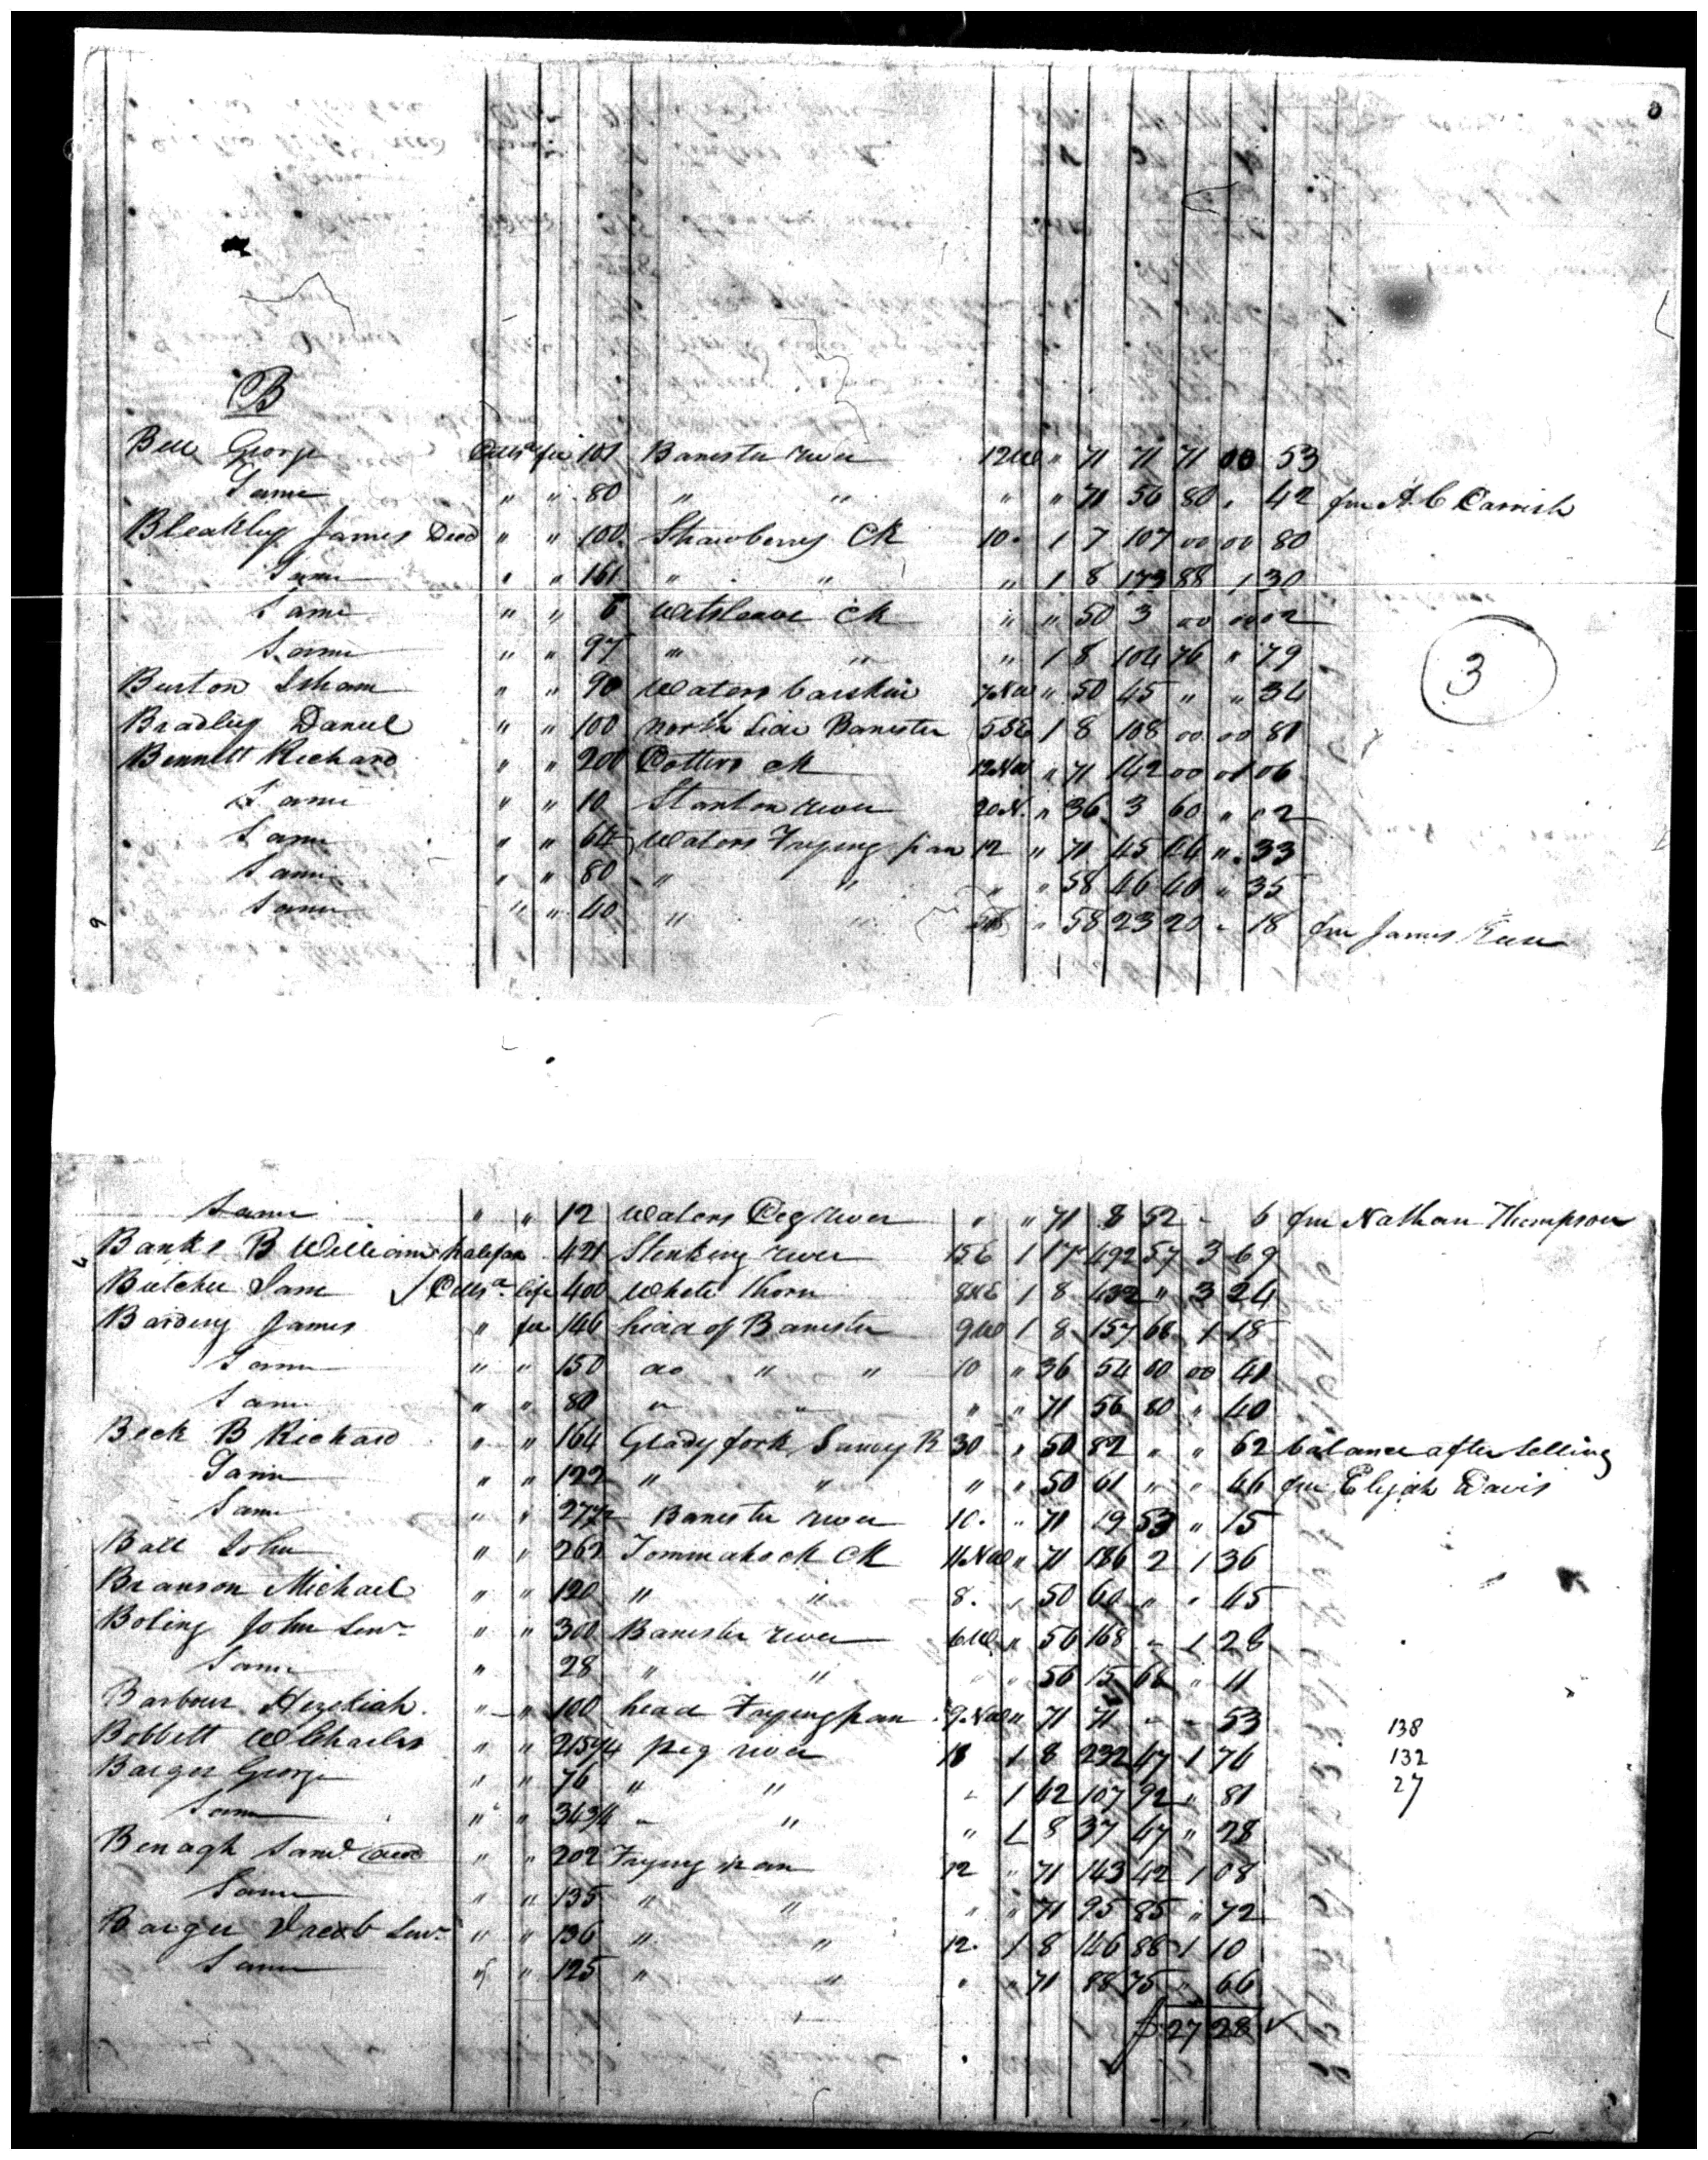 B
Bell George Pittsa fee 101 Banester river 12W " 71 71 71 00 53
Same " " 80 " " " " 71 56 80 " 42 fm A. C Parrish
Bleakley James Decd " " 100 Strawberry Ck 10 " 1 7 107 00 00 80
Same " " 161 " " " 1 8 173 88 1 30
Same " " 6 Ck " " 50 3 00 00 02
Same " " 97 " " " 1 8 104 76 " 79
Burton Isham " " 90 Waters bairskin 7NW " 50 45 " " 34
Bradley Daniel " " 100 North Side Banester 5SE 1 8 108 00 00 81
Bennett Richard " " 200 Potters Ck 12NW " 71 142 00 01 06
Same " " 10 Stanton river 20N. " 36 3 60 " 02
Same " " 64 Waters Frying pan 12 " 71 45 44 " 33
Same " " 80 " " " " 58 46 40 " 35
Same " " 40 " " " 58 23 20 " 18 fm James
3
Same " " 12 Waters Pig river " " 71 8 52 " 6 fm Nathan Thompson
Banks B William Halifax 421 Stinking river 15E 1 17 492 57 3 69
Butcher Sam ✓ Pittsa life 400 White thorn 8NE 1 8 432 " 3 24
Bardeny James " fee 146 head of Banester 9W 1 8 157 68 1 18
Same " " 150 do " " 10 " 36 54 00 00 41
Same " " 80 " " " " 71 56 80 " 40
Beck B Richard " " 164 Glady fork Sancy R 30 " 50 82 " " 62 balance after selling
Same " " 122 " " " " 50 61 " " 46 fm Elijah Davis
Same " " 27½ Banester river 10. " 71 19 53 " 15
Ball John " " 262 Tommahock Ck 11NW " 71 186 2 1 36
Branson Michael " " 120 " " 8. " 50 60 " " 45
Boling John Senr " " 300 Banester river 6W " 56 168 " 1 26
Same " 28 " " " " 56 15 68 " 11
Barbour Hezekiah " " 100 head Fryingpan 9.NW " 71 71 " " 53
138
Bobbett W Charles " " 215¼ pig river 18 1 8 232 47 1 74
132
Barger George " " 76 " " " 1 42 107 92 " 81
27
Same " " 34¾ " " " 1 8 37 47 " 28
Benagh Saml Decd " " 202 Frying pan 12 " 71 143 42 1 08
Same " " 135 " " " " 71 95 85 " 72
Barger Jacob Senr " " 136 " " 12. 1 8 146 88 1 10
Same " " 125 " " " " 71 88 75 " 66
$ 27 28 ✓